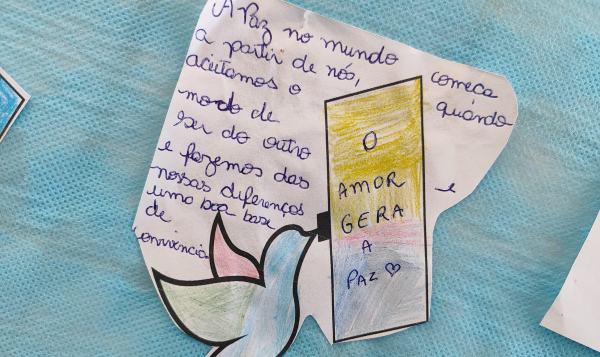 A Paz no mundo começa
a partir de nós, quando
aceitamos o
modo de
ser do outro
e fazemos das
nossas diferenças
uma boa base
de
convivência
e
O
AMOR
GERA
A
PAZ ♡